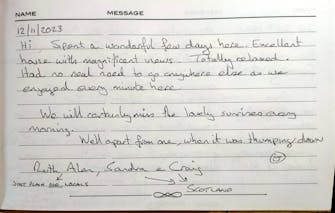 NAME MESSAGE
12/11/2023
Hi, Spent a wonderful few days here. Excellent
house with magnificent views. Totally relaxed.
Had no real need to go anywhere else as we
enjoyed every minute here
We will certainly miss the lovely sunrises every
morning.
Well apart from one, when it was thumping down
Ruth, Alan, Sandra & Craig
LOCALS
SCOTLAND